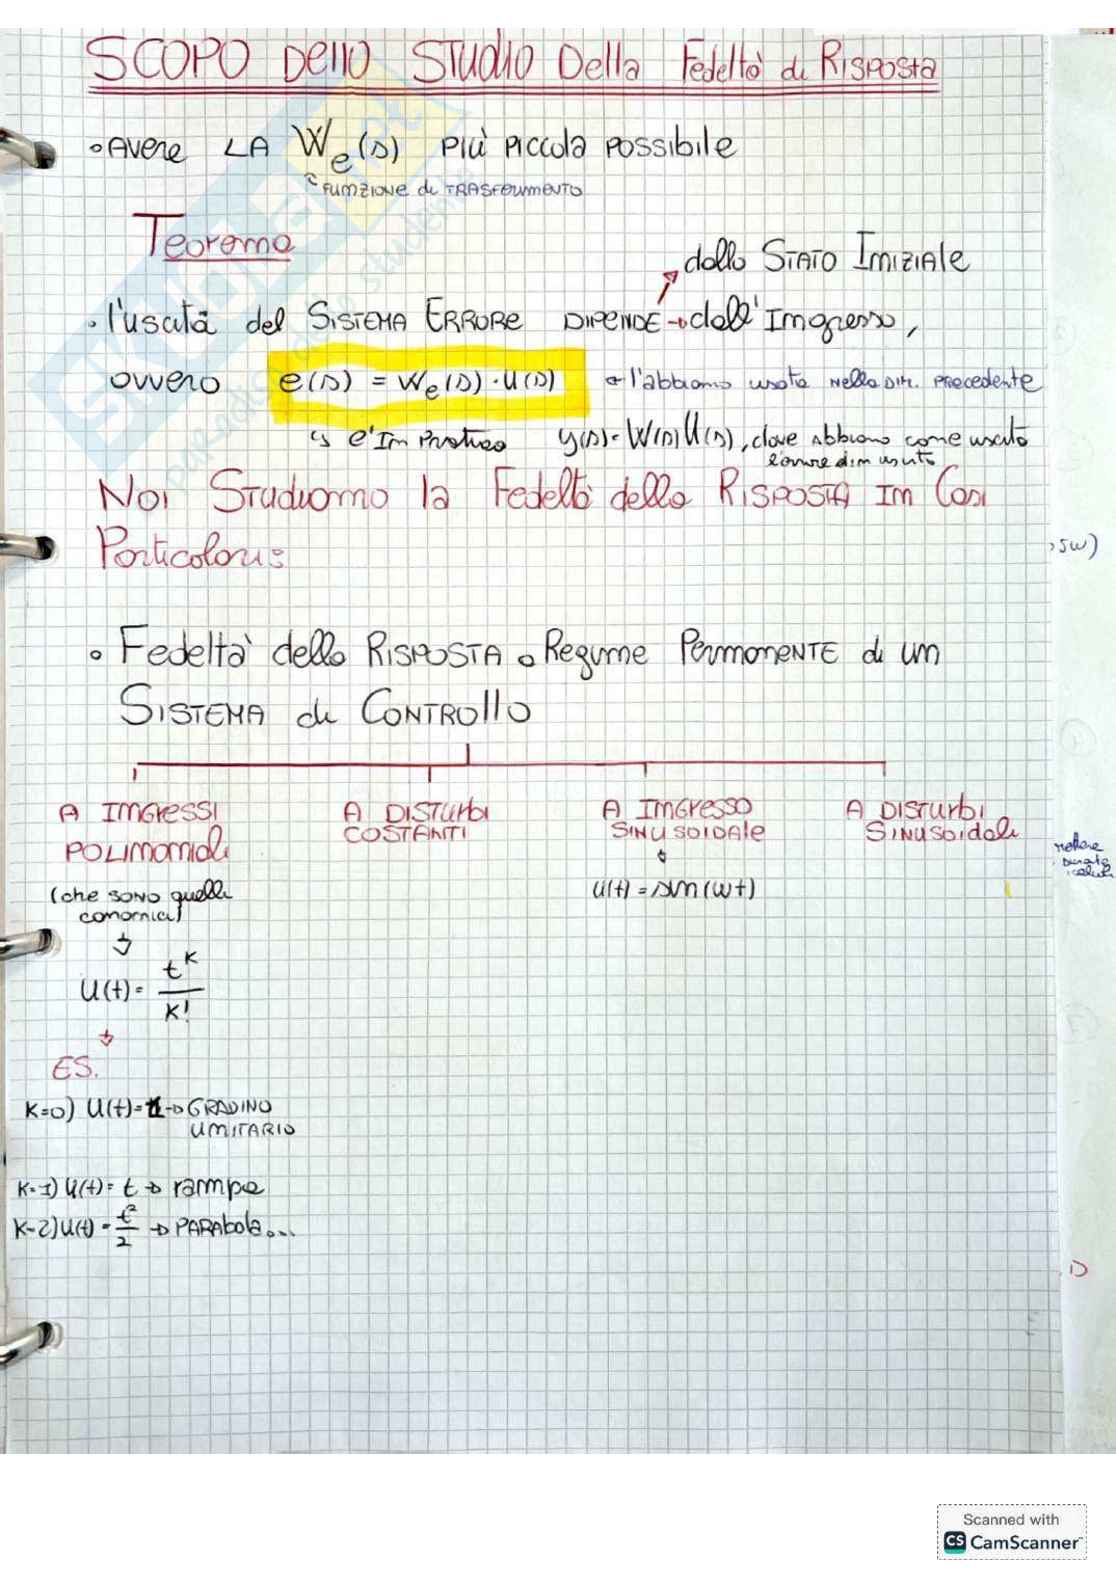 SCOPO Dello Studio Della Fedeltà di Risposta
• Avere LA We(s) più piccola possibile
funzione di TRASFERIMENTO
Teorema
dallo STATO Iniziale
• l'uscita del SISTEMA ERRORE DIPENDE → dall'Ingresso,
ovvero e(s) = We(s) · U(s) ← l'abbiamo usata nella Dim. precedente
↳ e' In Pratica y(s) = W(s)U(s), dove abbiamo come uscita
l'errore di in uscita
Noi Studiamo la Fedeltà della RISPOSTA In Casi
Particolari:
, sw)
• Fedeltà della RISPOSTA a Regime Permanente di un
SISTEMA di CONTROllO
A INGRESSI
POLINOMIALI
A DISTURBI
COSTANTI
A INGRESSO
SINUSOIDALE
A DISTURBI
SINUSOIDALI
(che sono quelli
canonici)
U(t) = sin(wt)
U(t) = t^K / K!
ES.
K=0) U(t)=1 → GRADINO
UNITARIO
K=1) U(t)= t → rampa
K=2) U(t) = t²/2 → PARAbola...
Scanned with
CS CamScanner